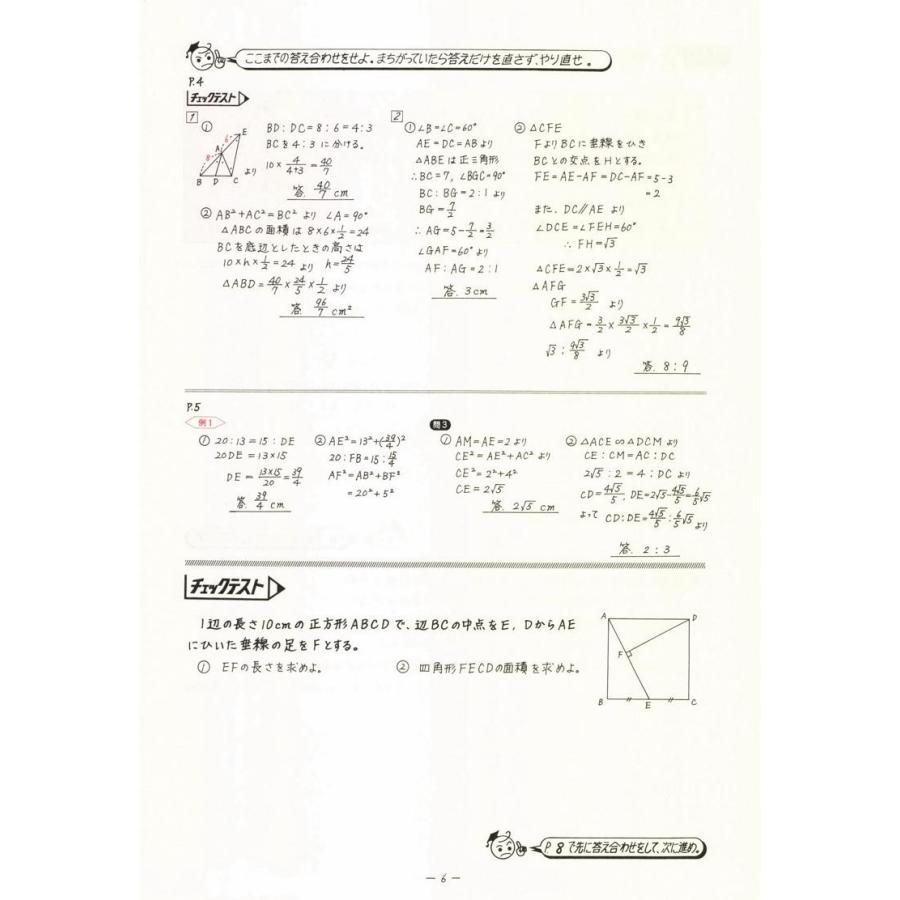 ここまでの答え合わせをせよ。まちがっていたら答えだけを直さず、やり直せ。
P.4
チェックテスト
1
①
E
6
A
8
B D C より
BD:DC=8:6=4:3
BCを4:3に分ける。
10×4/(4+3)=40/7
答. 40/7 cm
② AB²+AC²=BC² より ∠A=90°
△ABCの面積は 8×6×1/2=24
BCを底辺としたときの高さは
10×h×1/2=24 より h=24/5
△ABD=40/7×24/5×1/2 より
答. 96/7 cm²
2
① ∠B=∠C=60°
AE=DC=ABより
△ABEは正三角形
∴BC=7, ∠BGC=90°
BC:BG=2:1より
BG=7/2
∴AG=5-7/2=3/2
∠GAF=60°より
AF:AG=2:1
答. 3cm
② △CFE
FよりBCに垂線をひき
BCとの交点をHとする。
FE=AE-AF=DC-AF=5-3
=2
また、DC//AE より
∠DCE=∠FEH=60°
∴FH=√3
△CFE=2×√3×1/2=√3
△AFG
GF=3√3/2 より
△AFG=3/2×3√3/2×1/2=9√3/8
√3:9√3/8 より
答. 8:9
P.5
例1
① 20:13=15:DE
20DE=13×15
DE=13×15/20=39/4
答. 39/4 cm
② AE²=13²+(39/4)²
20:FB=15:15/4
AF²=AB²+BF²
=20²+5²
問3
① AM=AE=2より
CE²=AE²+AC²より
CE²=2²+4²
CE=2√5
答. 2√5 cm
② △ACE∽△DCMより
CE:CM=AC:DC
2√5:2=4:DCより
CD=4√5/5, DE=2√5-4√5/5=6/5√5
よって CD:DE=4√5/5:6/5√5より
答. 2:3
チェックテスト
1辺の長さ10cmの正方形ABCDで、辺BCの中点をE, DからAE
にひいた垂線の足をFとする。
① EFの長さを求めよ。
② 四角形FECDの面積を求めよ。
A D
F
B E C
P.8で先に答え合わせをして、次に進め。
— 6 —